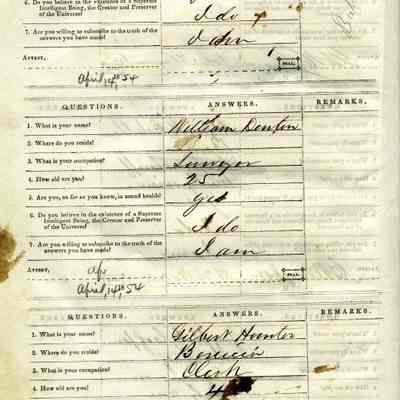 6. Do you believe in the existence of a Supreme
Intelligent Being, the Creator and Preserver
of the Universe?
I do
7. Are you willing to subscribe to the truth of the
answers you have made?
I am
ATTEST,
SEAL.
April, 14th 54
QUESTIONS. ANSWERS. REMARKS.
1. What is your name? William Denton
2. Where do you reside?
3. What is your occupation? Lawyer
4. How old are you? 25
5. Are you, so far as you know, in sound health? yes
6. Do you believe in the existence of a Supreme
Intelligent Being, the Creator and Preserver
of the Universe?
I do
7. Are you willing to subscribe to the truth of the
answers you have made?
I am
ATTEST, Apr
SEAL.
April, 14th, 54
QUESTIONS. ANSWERS. REMARKS.
1. What is your name? Gilbert Hunter
2. Where do you reside? Benicia
3. What is your occupation? Clerk
4. How old are you?